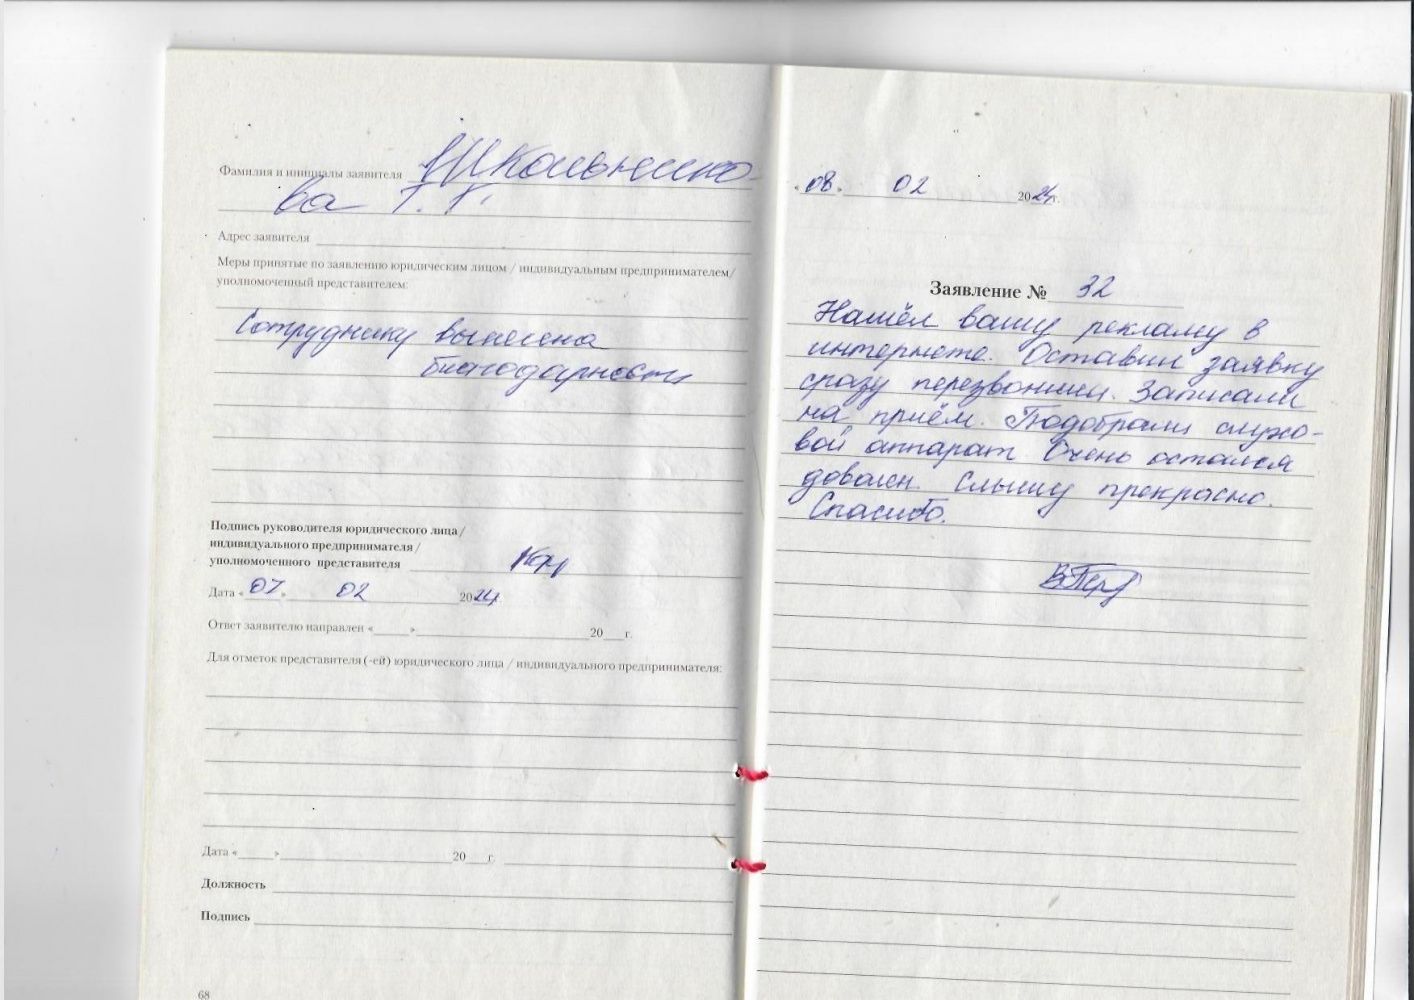 Фамилия и инициалы заявителя Школьнико-
ва Т. Г.
Адрес заявителя
Меры принятые по заявлению юридическим лицом / индивидуальным предпринимателем/
уполномоченный представителем:
Сотруднику вынесена
благодарность
Подпись руководителя юридического лица /
индивидуального предпринимателя /
уполномоченного представителя
Дата «07» 02 2024
Ответ заявителю направлен « » 20 г.
Для отметок представителя (-ей) юридического лица / индивидуального предпринимателя:
Дата « » 20 г.
Должность
Подпись
68
«08» 02 2024г.
Заявление № 32
Нашёл вашу рекламу в
интернете. Оставил заявку
сразу перезвонили. Записали
на приём. Подобрали слухо-
вой аппарат. Очень остался
доволен. Слышу прекрасно.
Спасибо.